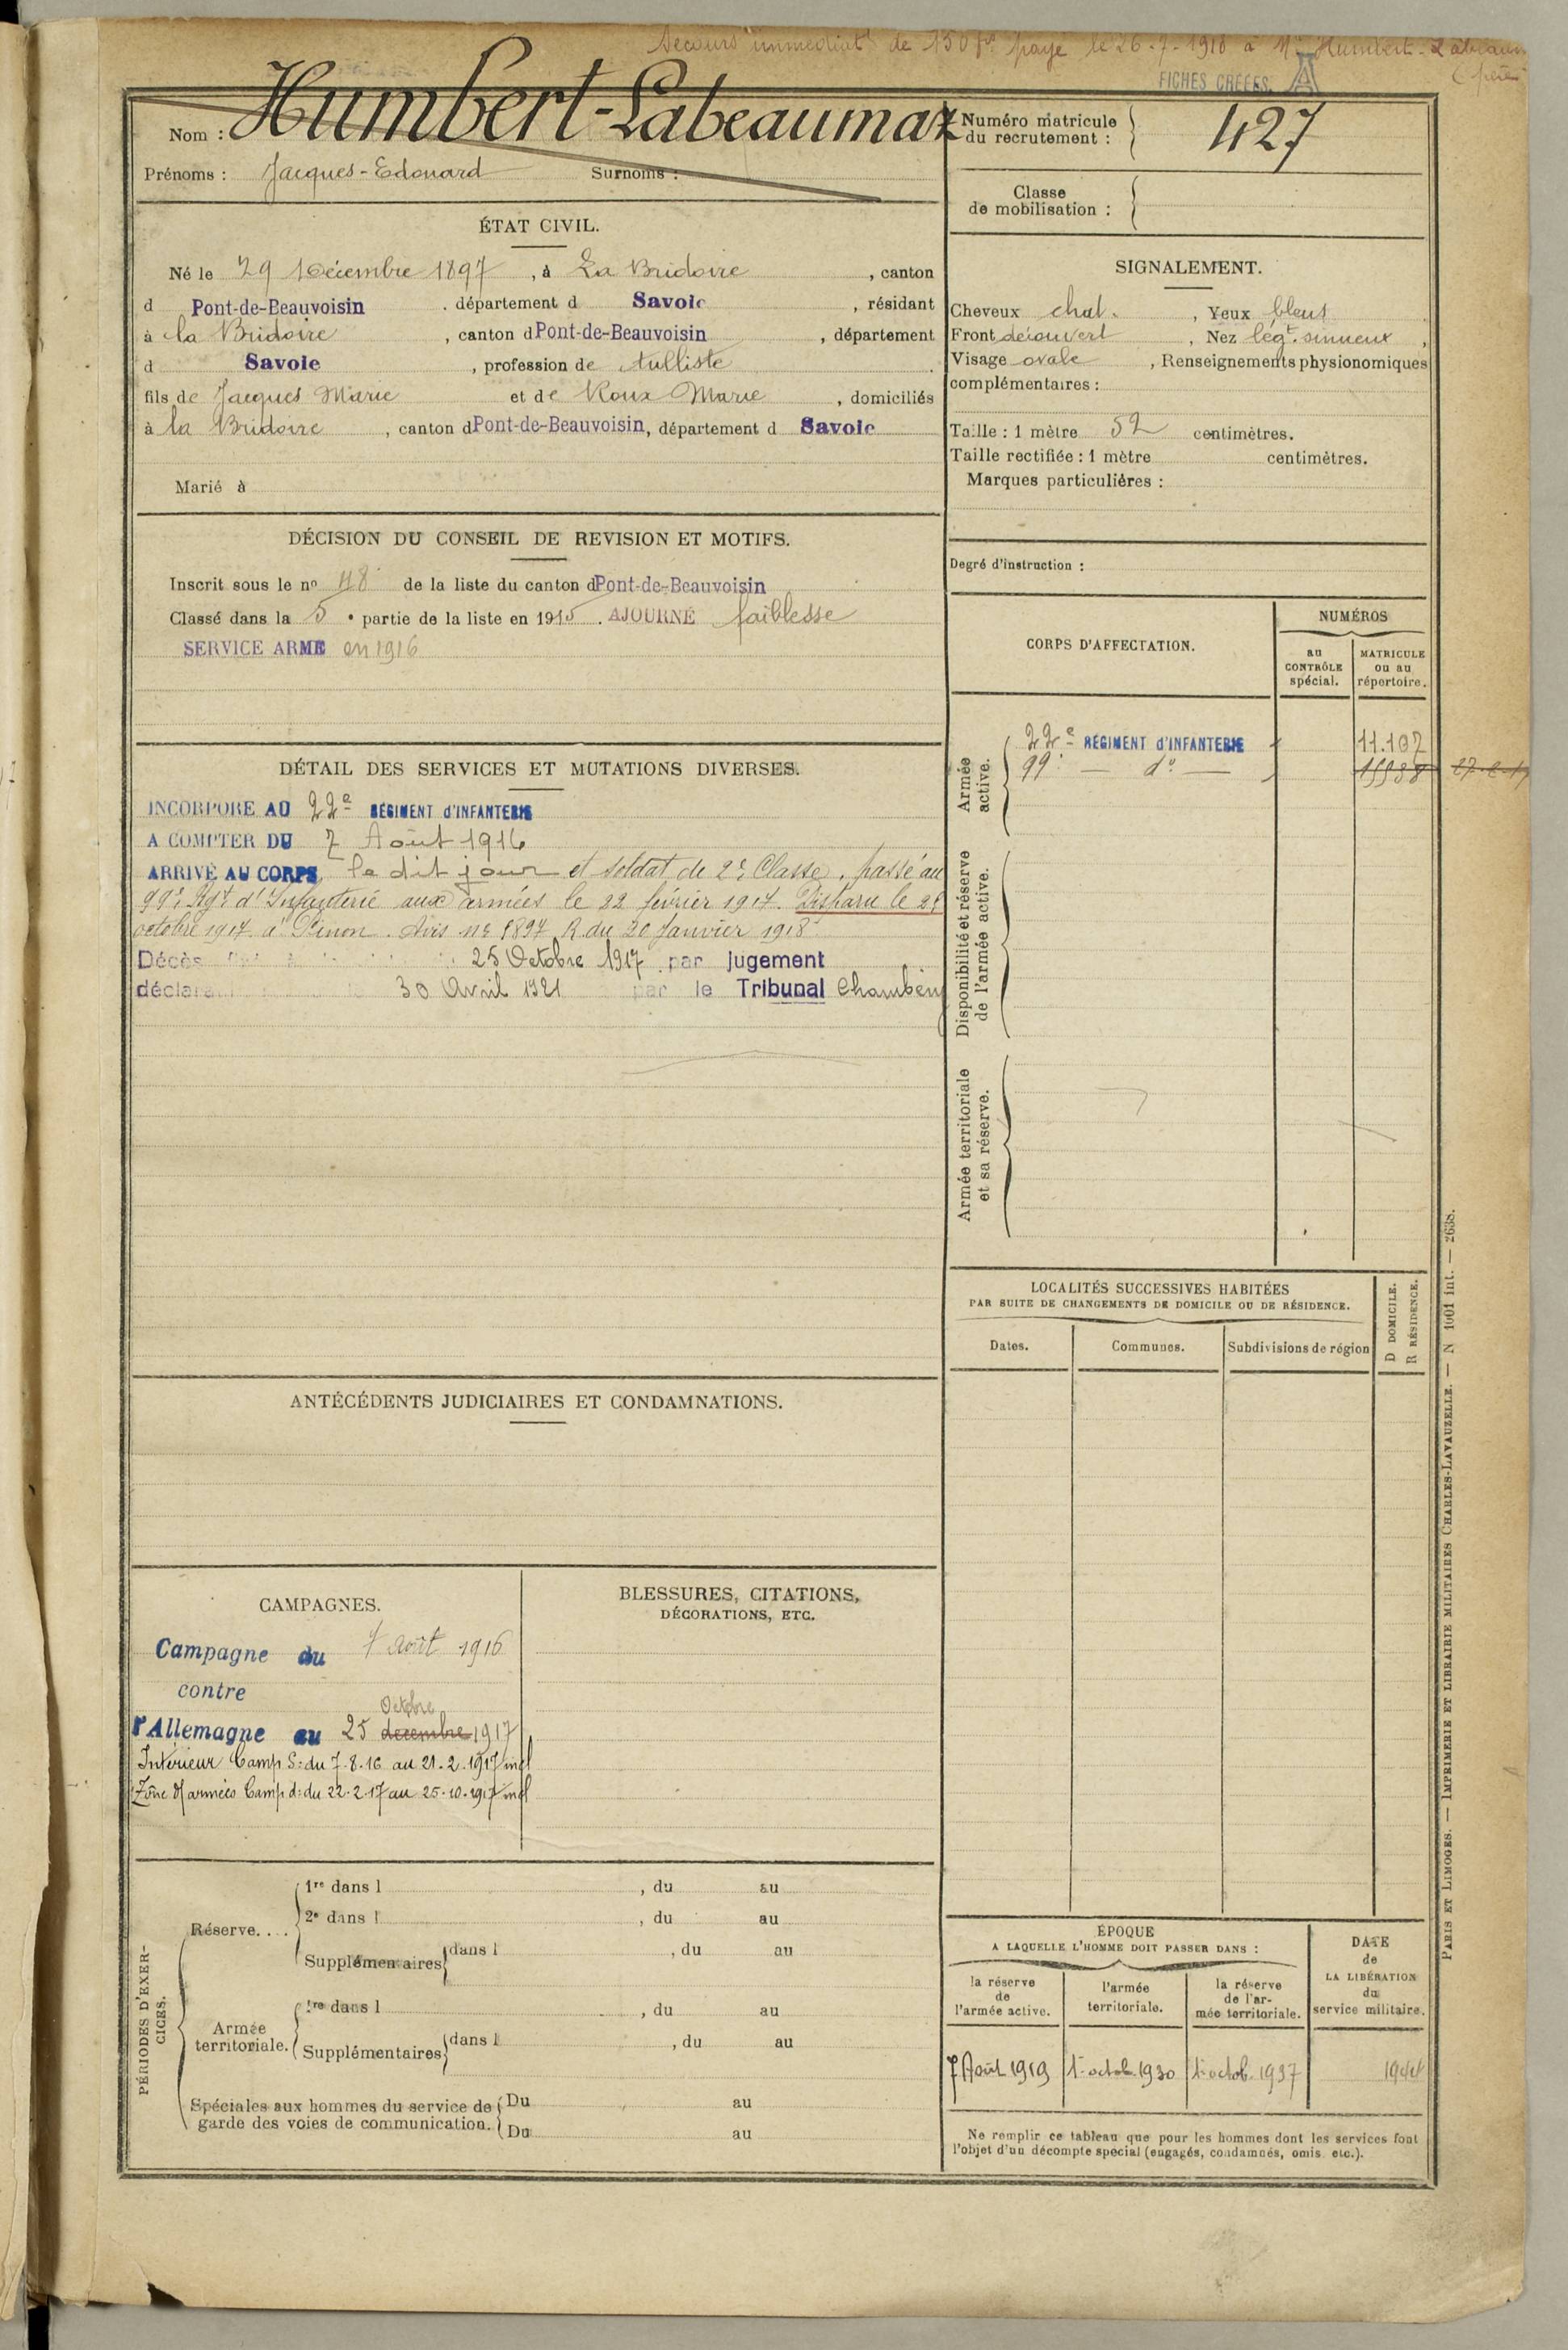 Secours immédiat de 150 frs payé le 26-7-1918 à Mr Humbert-Labeaum
(père)
FICHES CRÉÉES. A
Nom : Humbert-Labeaumaz
Prénoms : Jacques-Edouard Surnoms :
ÉTAT CIVIL.
Né le 29 Décembre 1897, à La Bridoire, canton
d Pont-de-Beauvoisin. département d Savoie, résidant
à la Bridoire, canton d Pont-de-Beauvoisin, département
d Savoie, profession de tulliste.
fils de Jacques Marie et de Roux Marie, domiciliés
à la Bridoire, canton d Pont-de-Beauvoisin, département d Savoie
Marié à
DÉCISION DU CONSEIL DE REVISION ET MOTIFS.
Inscrit sous le no 48 de la liste du canton d Pont-de-Beauvoisin
Classé dans la 5 e partie de la liste en 1915. AJOURNÉ faiblesse
SERVICE ARMÉ en 1916
DÉTAIL DES SERVICES ET MUTATIONS DIVERSES.
INCORPORÉ AU 22e RÉGIMENT d'INFANTERIE
A COMPTER DU 7 Août 1916
ARRIVÉ AU CORPS le dit jour et soldat de 2e Classe. passé au
99e Rgt d'Infanterie aux armées le 22 février 1917. Disparu le 25
octobre 1917 à Pinon. Avis no 1897 R. du 20 Janvier 1918
Décès 25 Octobre 1917 par jugement
déclara 30 Avril 1921 par le Tribunal Chambéry
ANTÉCÉDENTS JUDICIAIRES ET CONDAMNATIONS.
CAMPAGNES.
Campagne du 7 Août 1916
contre
Octobre
l'Allemagne au 25 decembre 1917
Intérieur Camp S: du 7-8-16 au 21-2-1917 incl
Zône d armées Camp d: du 22-2-17 au 25-10-1917 incl
BLESSURES, CITATIONS,
DÉCORATIONS, ETC.
PÉRIODES D'EXER-
CICES.
Réserve....
1re dans l , du au
2e dans l , du au
Supplémentaires dans l , du au
Armée
territoriale.
1re dans l , du au
Supplémentaires dans l , du au
Spéciales aux hommes du service de
garde des voies de communication.
Du au
Du au
Numéro matricule
du recrutement : 427
Classe
de mobilisation :
SIGNALEMENT.
Cheveux chat., Yeux bleus
Front découvert, Nez légt. sinueux,
Visage ovale, Renseignements physionomiques
complémentaires :
Taille : 1 mètre 52 centimètres.
Taille rectifiée : 1 mètre centimètres.
Marques particulières :
Degré d'instruction :
CORPS D'AFFECTATION.
NUMÉROS
au
CONTRÔLE
spécial.
MATRICULE
ou au
répertoire.
Armée
active.
22e RÉGIMENT d'INFANTERIE 11.107
99e — do —
Disponibilité et réserve
de l'armée active.
Armée territoriale
et sa réserve.
LOCALITÉS SUCCESSIVES HABITÉES
PAR SUITE DE CHANGEMENTS DE DOMICILE OU DE RÉSIDENCE.
Dates.
Communes.
Subdivisions de région
D DOMICILE.
R RÉSIDENCE.
ÉPOQUE
A LAQUELLE L'HOMME DOIT PASSER DANS :
la réserve
de
l'armée active.
l'armée
territoriale.
la réserve
de l'ar-
mée territoriale.
DATE
de
LA LIBÉRATION
du
service militaire.
7 Août 1919 1er octob. 1930 1er octob. 1937 1944
Ne remplir ce tableau que pour les hommes dont les services font
l'objet d'un décompte spécial (engagés, condamnés, omis. etc.).
PARIS ET LIMOGES. — IMPRIMERIE ET LIBRAIRIE MILITAIRES CHARLES-LAVAUZELLE. — N 1001 int. — 2638.